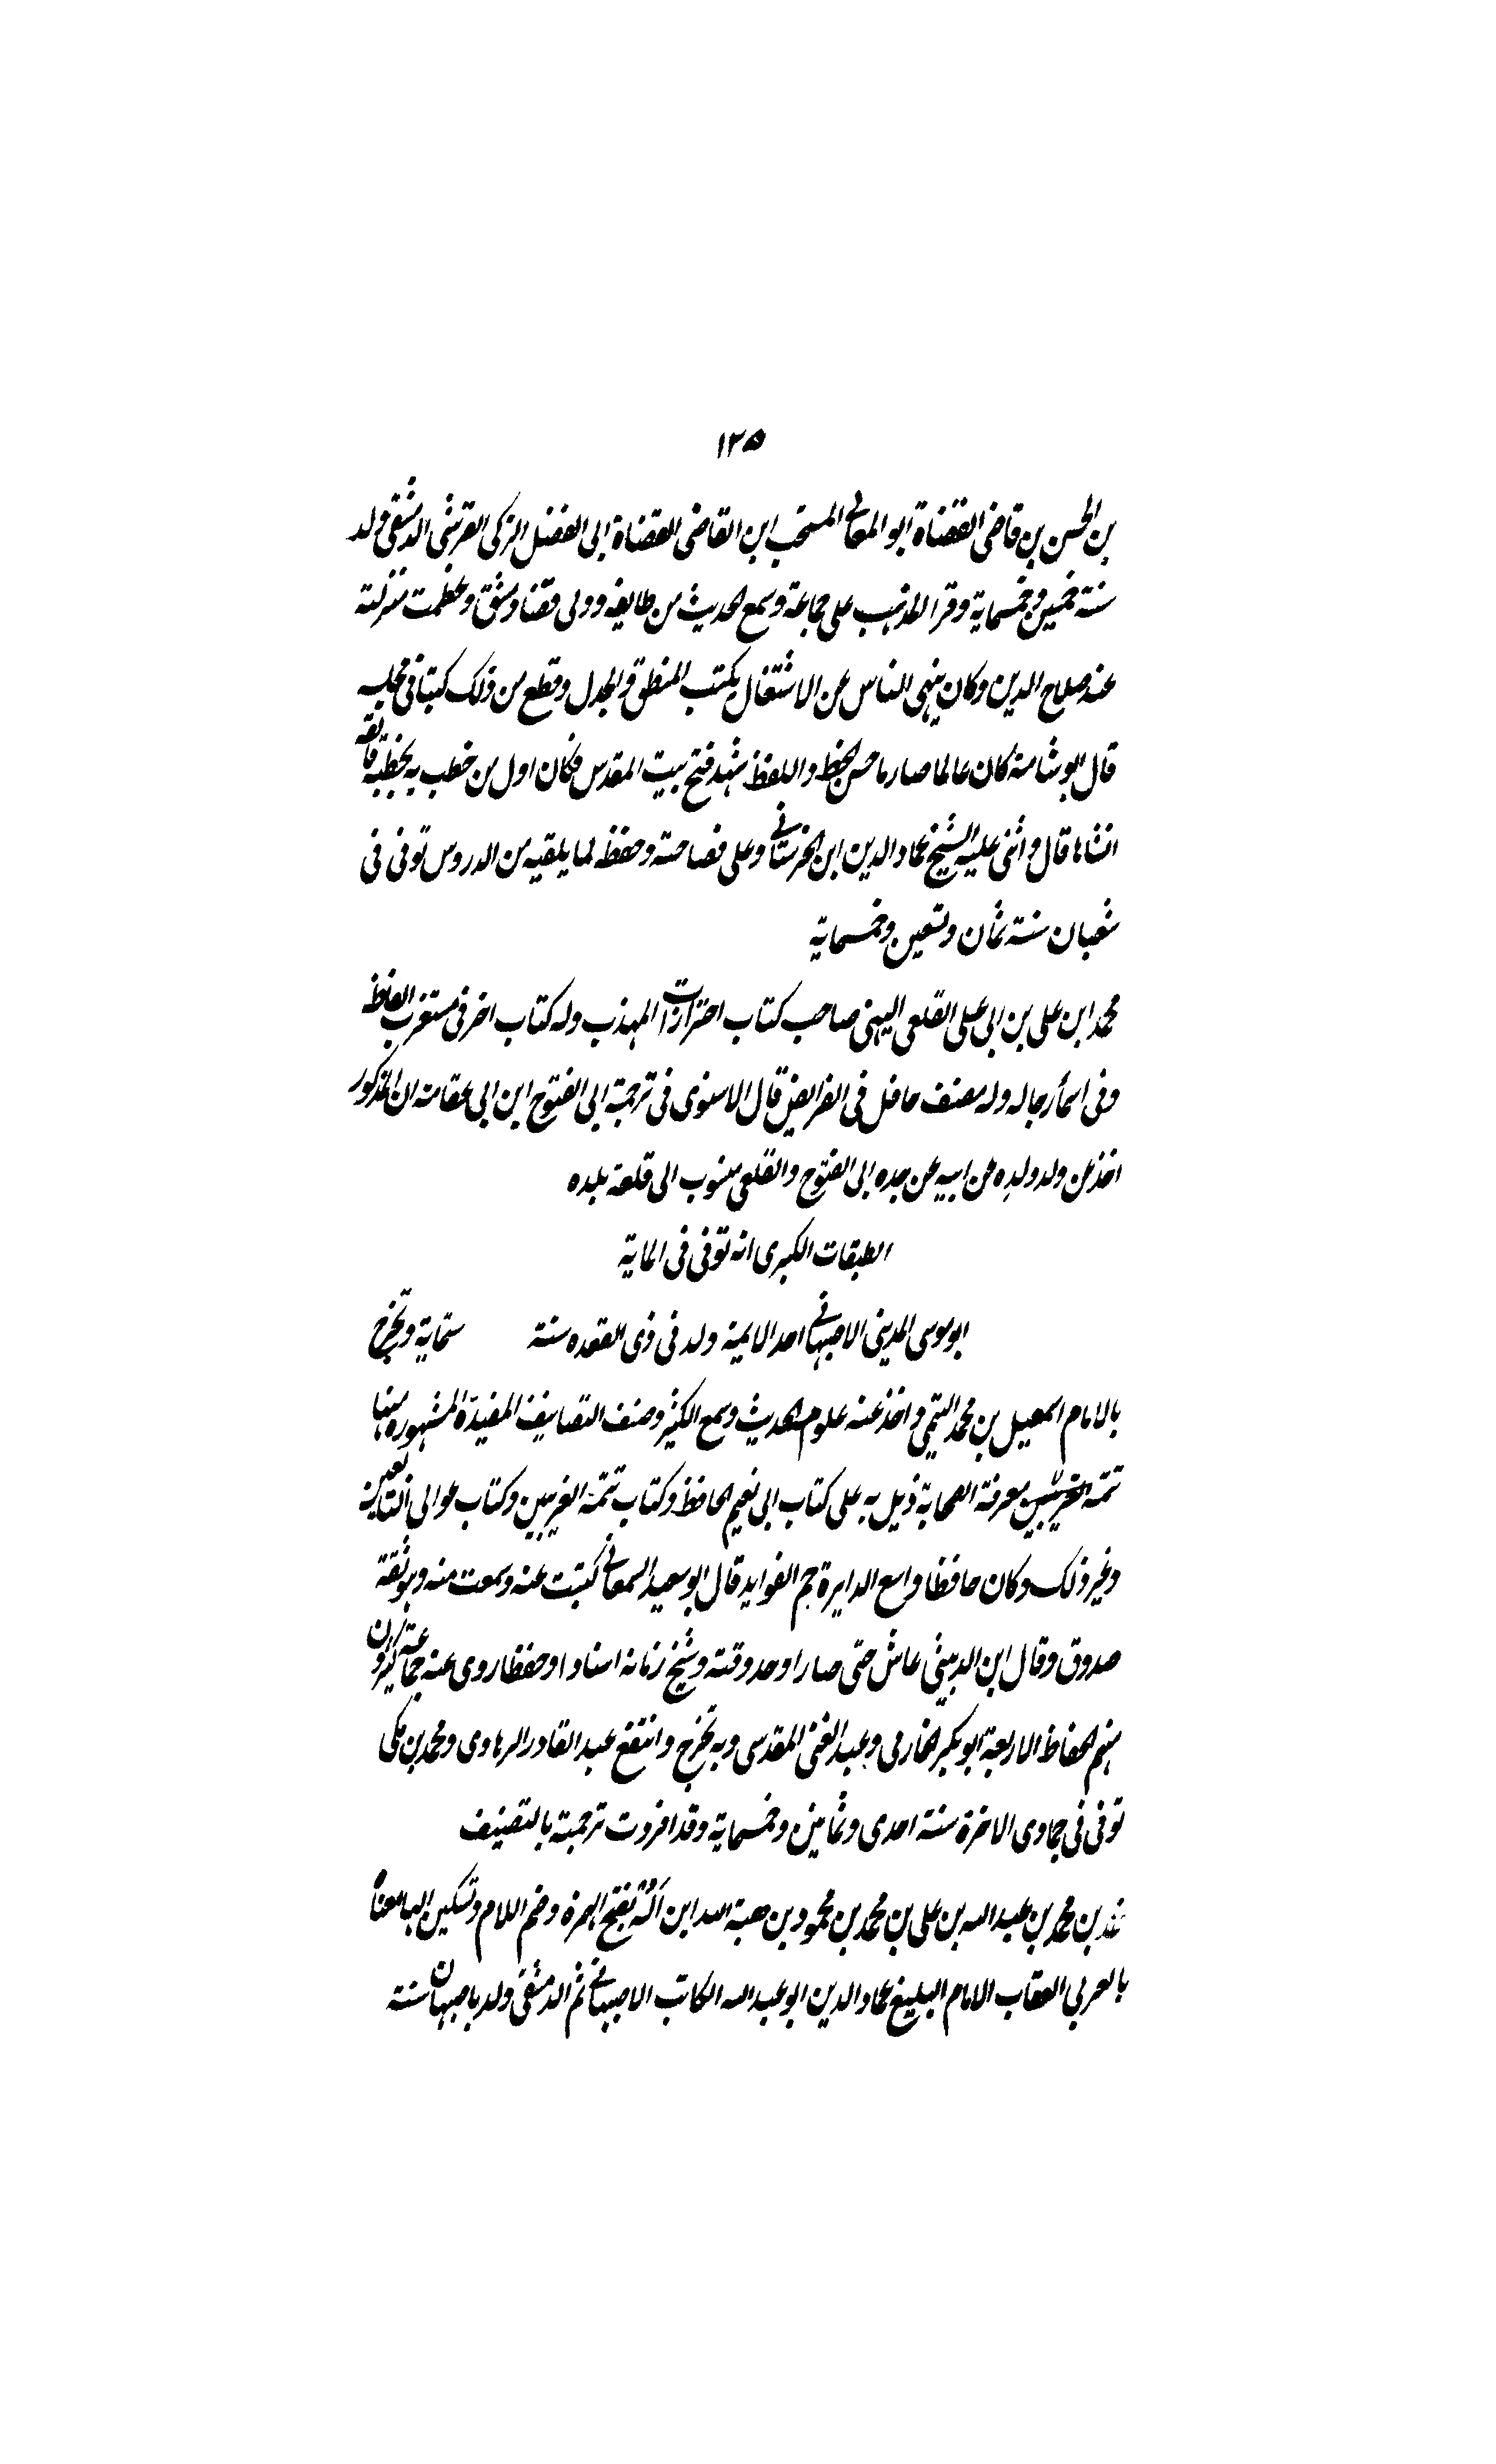 ١٢٥
بن الحسن بن قاضى القضاة ابو المعالى المنتخب ابن القاضى القضاة ابى الفضل الزكى القرشى الدمشقى ولد
سنة خمسين وخمسماية وقرا المذهب على جماعة وسمع الحديث من طايفه وولى قضا دمشق وعظمت منزلته
عند صلاح الدين وكان ينهى الناس عن الاشتغال بكتب المنطق والجدل وقطع من ذلك كتبا فى مجلسه
قال ابو شامة كان عالما صارما حسن الخط واللفظ شهد فتح بيت المقدس فكان اول من خطب به بخطبة فائقه
انشاها قال واثنى عليه الشيخ عماد الدين ابن الحرستانى وعلى فصاحته وحفظه لما يلقيه من الدروس توفى فى
شعبان سنة ثمان وتسعين وخمسماية
محمد ابن على بن ابى على القلعى اليمنى صاحب كتاب احترازات المهذب وله كتاب اخر فى مستغرب الفاظه
وفى اسمأ رجاله وله مصنف حافل فى الفرايض قال الاسنوى فى ترجمة ابى الفتوح ابن ابى عقامة ان المذكور
اخذ عن ولد ولده عن ابيه عن جده ابى الفتوح والقلعى منسوب الى قلعة بلده
الطبقات الكبرى انه توفى فى الماية
ابو موسى المدينى الاصبهانى احد الايمة ولد فى ذى القعده سنة ستماية وتخرج
بالامام اسمعيل بن محمد التيمى واخذ عنه علوم الحديث وسمع الكثير وصنف التصانيف المفيدة المشهوره منها
تتمة معرفة الصحابة ذيل به على كتاب ابى نعيم الحافظ وكتاب تتمة الغريبين وكتاب عوالى التابعين
وغير ذلك وكان حافظا واسع الدايرة جم الفوايد قال ابو سعيد السمعانى كتبت عنه وسمعت منه وهو ثقة
صدوق وقال ابن الدبيثى عاش حتى صار اوحد وقته وشيخ زمانه اسنادا وحفظا روى عنه جماعة كثيرون
منهم الحفاظ الاربعة ابو بكر الحازمى وعبد الغنى المقدسى وبه تخرج وانتفع عبد القادر الرهاوى ومحمد بن مكى
توفى فى جمادى الاخرة سنة احدى وثمانين وخمسماية وقد افردت ترجمته بالتصنيف
محمد بن محمد بن عبد الله بن على بن محمد بن محمود بن هبة الله ابن اَلُه بفتح الهمزة وضم اللام وتسكين الها معناه
بالعربى العقاب الامام البليغ عماد الدين ابو عبد الله الكاتب الاصبهانى ثم الدمشقى ولد باصبهان سنة